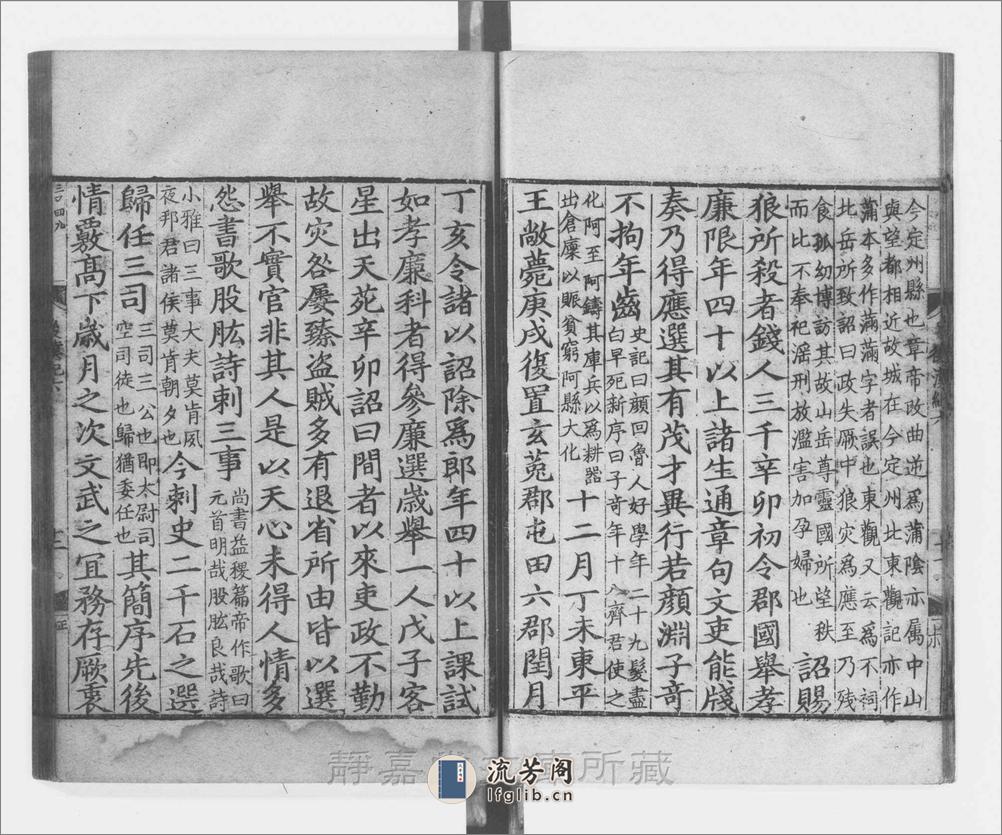 今定州縣也章帝改曲逆爲蒲陰亦属中山
與望都相近故城在今定州北東觀記亦作
蒲本多作滿滿字者誤也東觀又云爲不祠
北岳所致詔曰政失厥中狼灾爲應至乃殘
食孤幼博訪其故山岳尊靈國所望秩
而比不奉祀滛刑放濫害加孕婦也
詔賜
狼所殺者錢人三千辛卯初令郡國舉孝
廉限年四十以上諸生通章句文吏能牋
奏乃得應選其有茂才異行若顔淵子竒
不拘年齒
史記曰顔回魯人好學年二十九髮盡
白早死新序曰子竒年十八齊君使之
化阿至阿鑄其庫兵以爲耕器
出倉廩以賑貧窮阿縣大化
十二月丁未東平
王敞薨庚戌復置玄菟郡屯田六郡閏月
丁亥令諸以詔除爲郎年四十以上課試
如孝廉科者得參廉選歳舉一人戊子客
星出天苑辛卯詔曰間者以來吏政不勤
故灾咎屡臻盗賊多有退省所由皆以選
舉不實官非其人是以天心未得人情多
怨書歌股肱詩刺三事
尚書益稷篇帝作歌曰
元首明哉股肱良哉詩
小雅曰三事大夫莫肯夙
夜邦君諸侯莫肯朝夕也
今刺史二千石之選
歸任三司
三司三公也即太尉司
空司徒也歸猶委任也
其簡序先後
情覈髙下歳月之次文武之宜務存厥衷
靜嘉堂文庫所藏
流芳阁
lfglib.cn